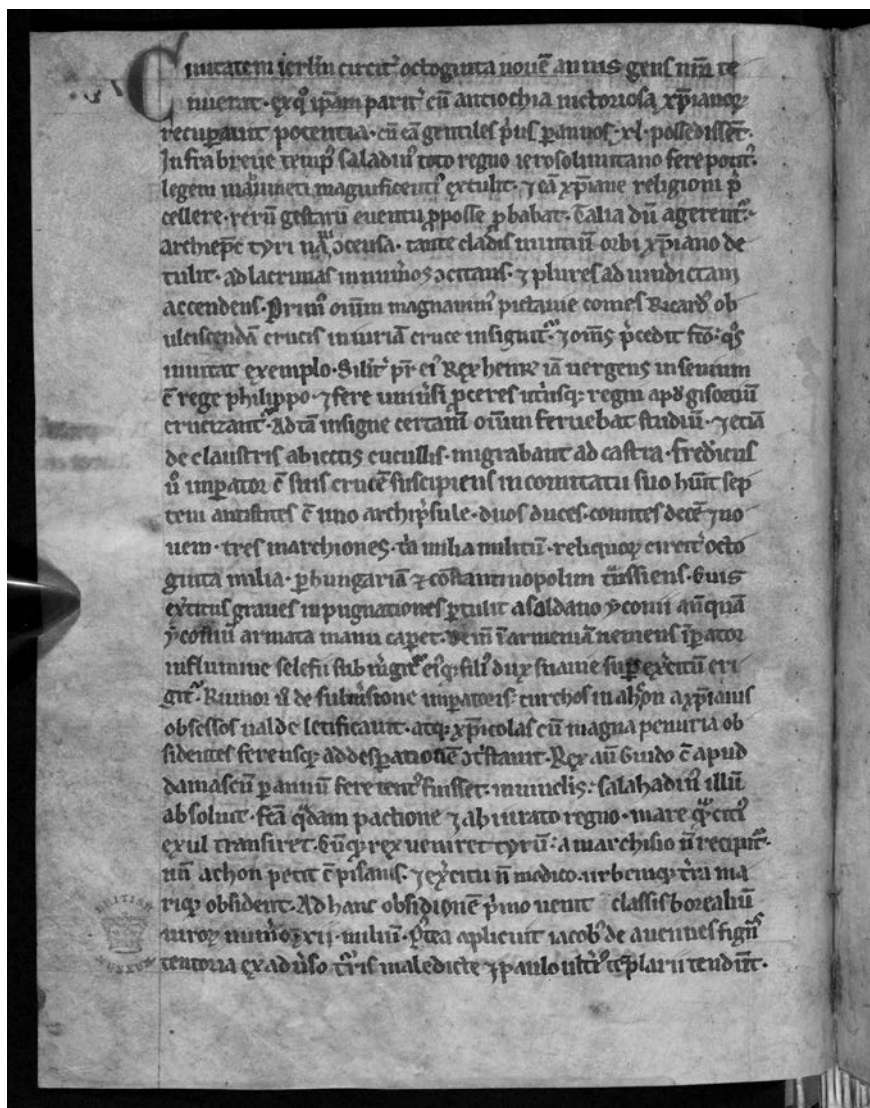 Ciuitatem ierl̅m circit᷑ octoginta nouē annis gens nr̅a te
nuerat· ex q̊ ip̅am parit᷑ cū antiochia uictoriosa xp̅ianoꝝ
recup̱auit potentia· cū eā gentiles p̱us p̱ annos ·xl· possedissēt·
Infra breue temp᷒ saladin᷒ toto regno ierosolimitano fere potit᷒·
legem maumeti magnificenti᷒ extulit· ⁊ eā xp̅iane religioni p̄
cellere· rerū gestarū euentu p̱posse p̱babat· Talia dū agerent᷑·
archiep̅c tyri naui ↄcensa· tante cladis nuntiū orbi xp̅iano de
tulit· ad lacrimas innum̅os ↄcitans· ⁊ plures ad uindictam
accendens· Prim᷒ oīum magnanim᷒ pictauie comes Ricard᷒ ob
ulciscendā crucis iniuriā cruce insignit᷑· ⁊ om̅s p̄cedit fc̅o· q̊s
inuitat exemplo· Silit᷑ pr̅ ei᷒ Rex henric᷒ iā uergens in senium
c̄ rege philippo· ⁊ fere uniu̅si p̱ceres ut̅usq; regni apd̅ gisortiū
crucizant᷑· Ad tā insigne certam̅ oīum feruebat studiū· ⁊ etiā
de claustris abiectis cucullis· migrabant ad castra· fredicus
ů imp̱ator c̄ suis crucē suscipiens in comitatu suo hūit sep
tem antistites c̄ uno archip̱sule· duos duces· comites decē ⁊ no
uem· tres marchiones· t̅a milia militū· reliquoꝝ circit᷑ octo
ginta milia· p̱ hungariā ⁊ cōstantinopolim t̅nssiens· Cuius
ex̅citus graues inpugnationes p̱tulit a soldano yconii anꝗ̄uā
yconiū armata manu cap̱et· Dein̅ ī armeniā ueniens īp̱ator
in flumine selefii subm̅git᷑· ei᷒q; fili᷒ dux suauie sup̱ ex̅citū eri
git᷑· Rumor u̅ de subm̅sione imp̱atoris· turchos in ahc̅on a xp̅ianis
obsessos ualde letificauit· atq; xp̅icolas cū magna penuria ob
sidentes ferensq; ad desp̱ationē ↄt̅stauit· Rex aū Guido c̄ apud
damascū p̱ annū fere tent᷒ fuisset· in uinclis· salahadin᷒ illū
absoluit· fc̅a q̅dam pactione ⁊ abiurato regno· mare q̅ citi᷒
exul transiret· Cūq; rex ueniret tyrū· a marchisio n̄ recipit᷑·
un̅ achon petit c̄ pisanis· ⁊ ex̅citu n̄ modico· urbemq; t̅ra ma
riq; obsident· Ad hanc obsidionē p̱mo uenit classis borealiū
uiroꝝ num̅o ·xii· miliū· P᷒tea aplicuit iacob᷒ de auennes fign̅s
tentoria ex adu̅so t᷑ris maledicte ⁊ paulo ult̅i᷒ tēplarii tendūt·
BRITISH
MUSEUM